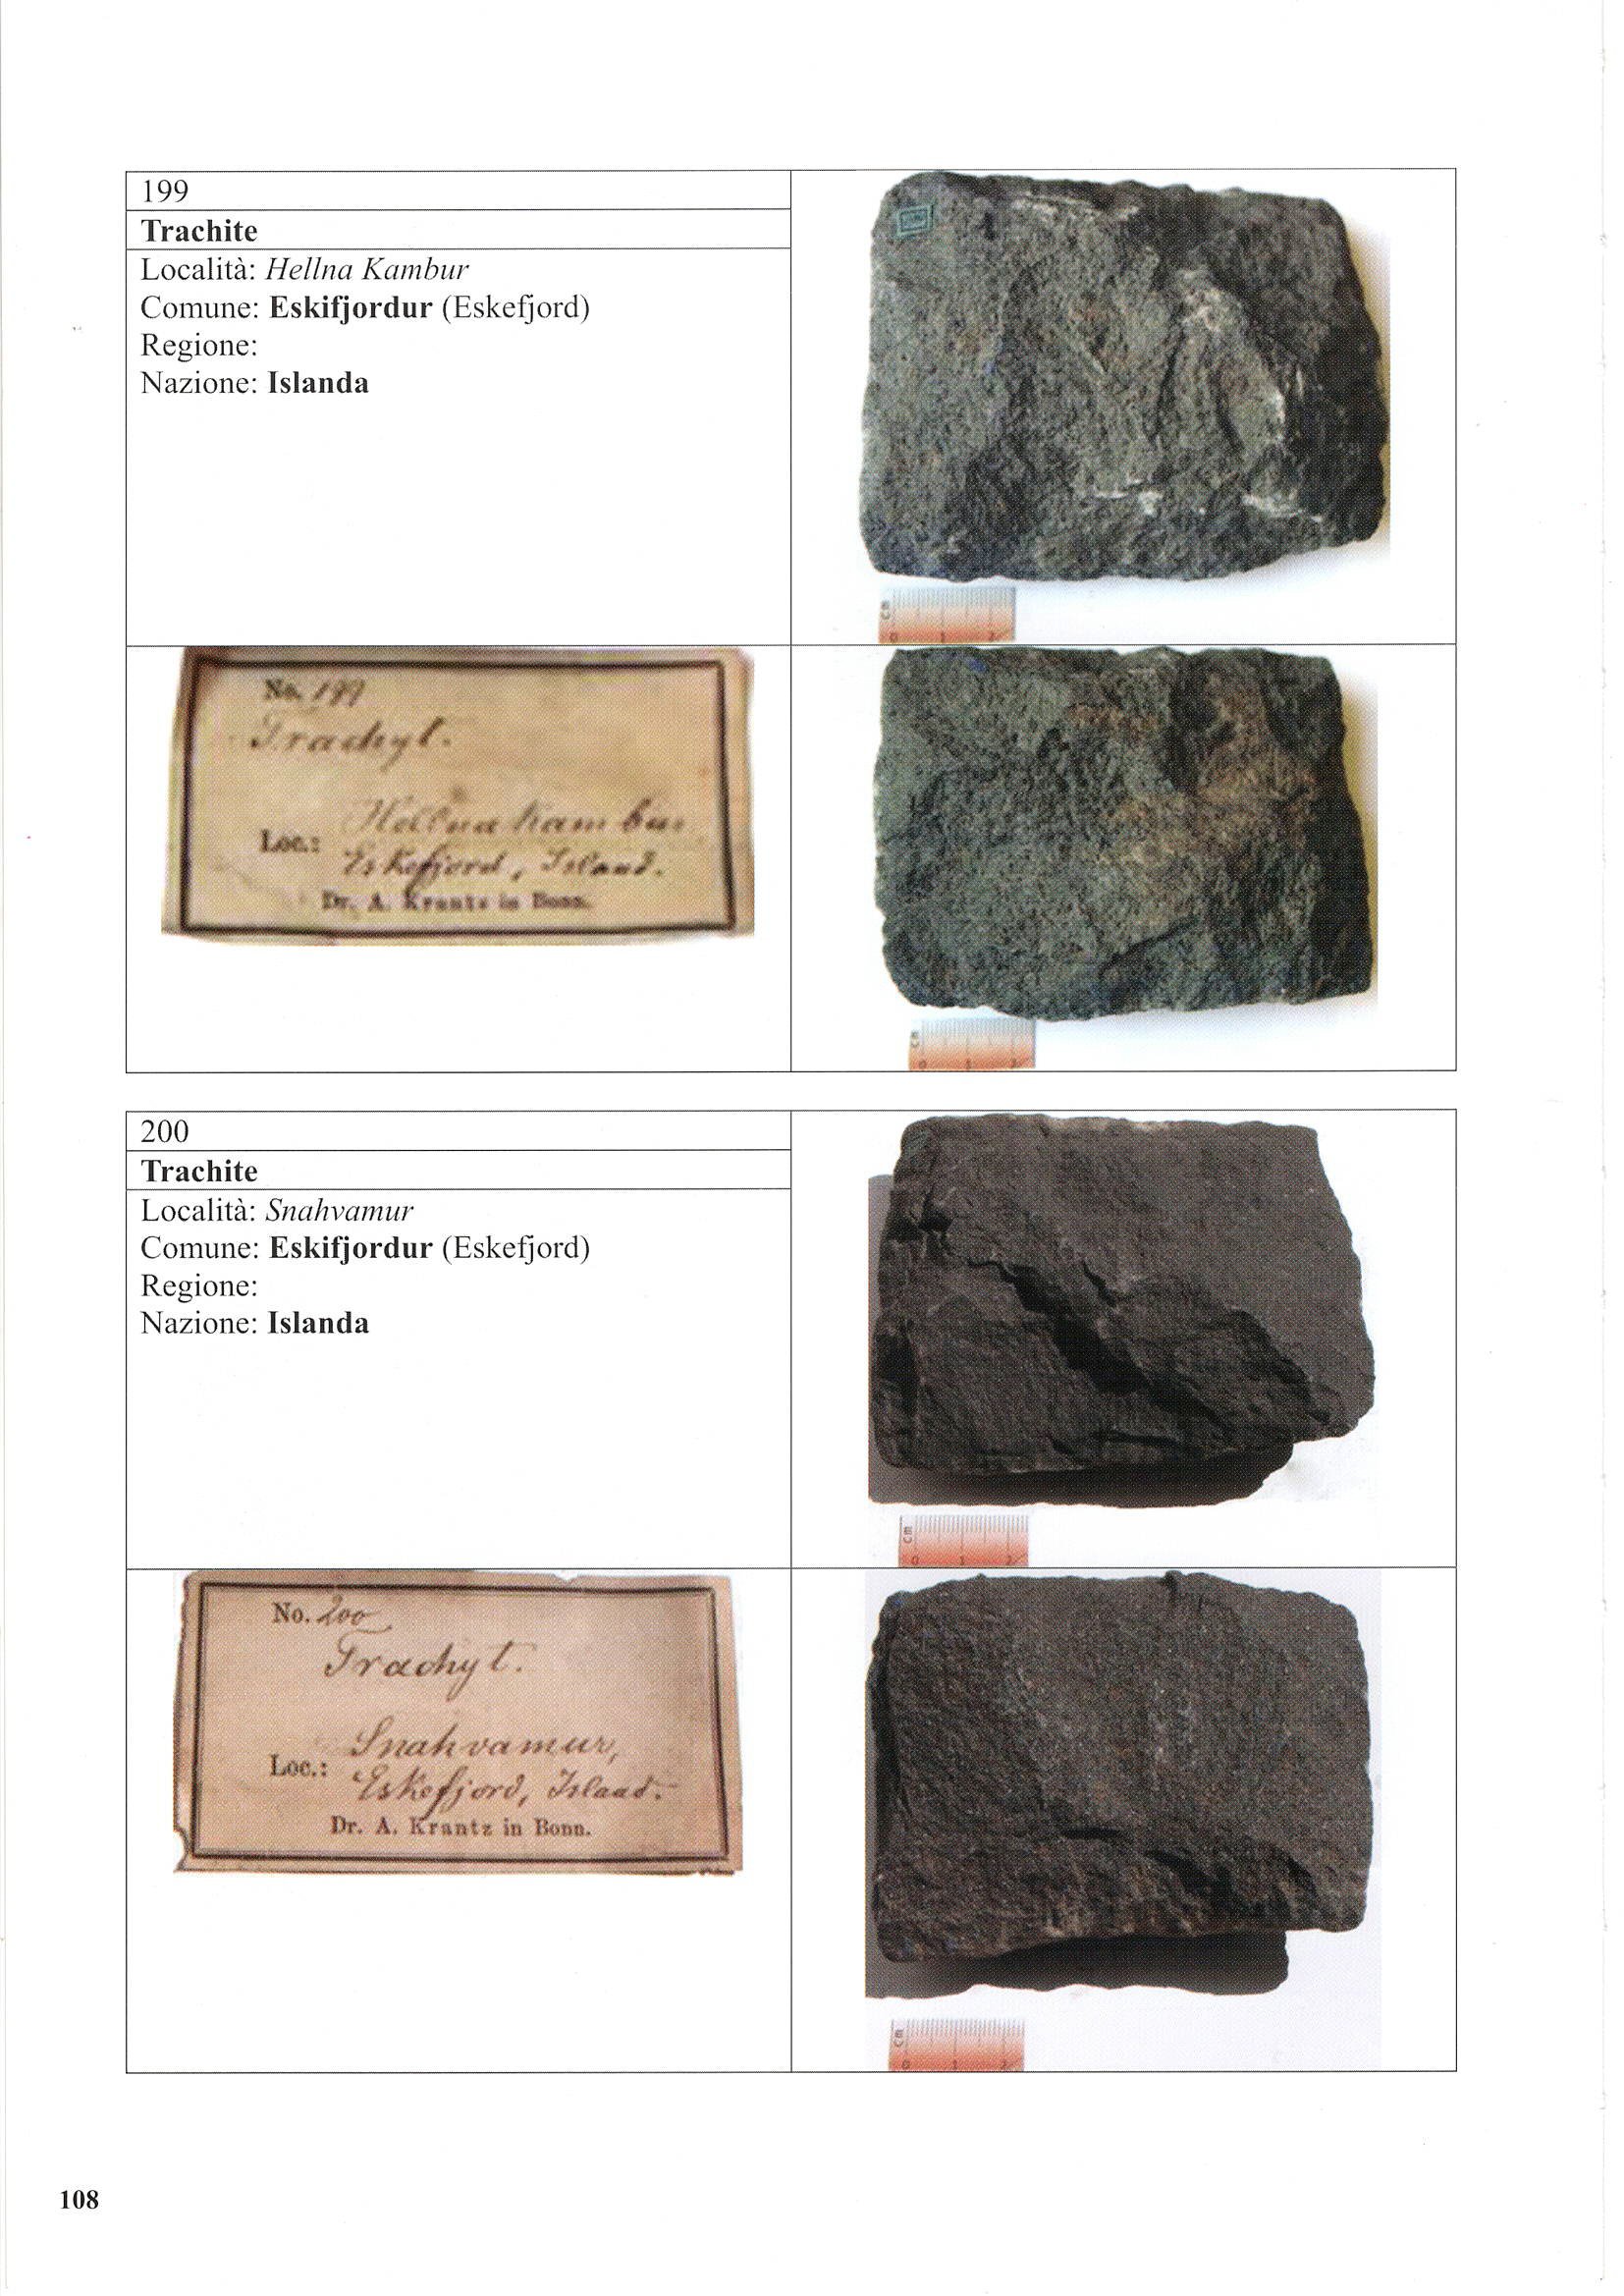 199
Trachite
Località: Hellna Kambur
Comune: Eskifjordur (Eskefjord)
Regione:
Nazione: Islanda
cm
0 1 2
No. 199
Trachyt.
Loc.: Hellna Kambur,
Eskefjord, Island.
Dr. A. Krantz in Bonn.
cm
0 1 2
200
Trachite
Località: Snahvamur
Comune: Eskifjordur (Eskefjord)
Regione:
Nazione: Islanda
cm
0 1 2
No. 200
Trachyt.
Loc.: Snahvamur,
Eskefjord, Island.
Dr. A. Krantz in Bonn.
cm
0 1 2
108